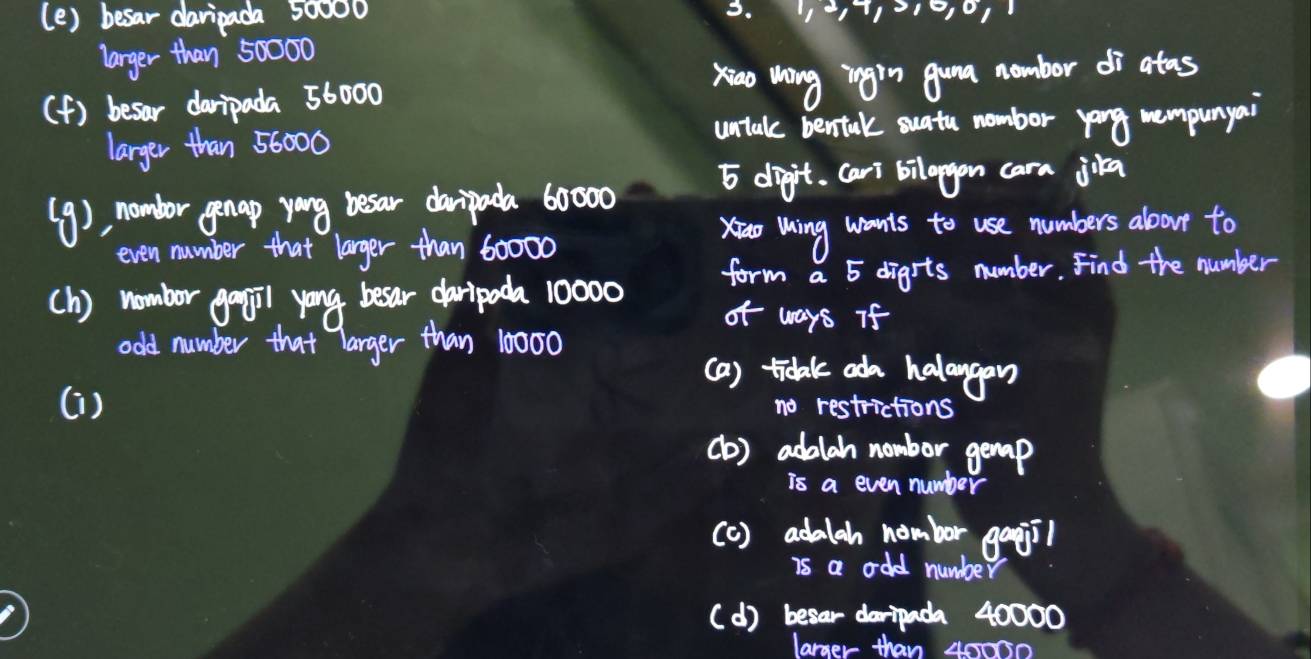 (e) besar daripada 50000
larger than 50000
(f) besar daripada 56000
larger than 56000
(g), nombor genap yang besar daripada 60000
even number that larger than 60000
(h) nombor ganjil yang besar daripada 10000
odd number that larger than 10000
(i)
3.
Xiao Ming ingin guna nombor di atas
untuk bentuk suatu nombor yang mempunyai
5 digit. Cari bilangan cara jika
Xiao Ming wants to use numbers above to
form a 5 digits number. Find the number
of ways if
(a) tidak ada halangan
no restrictions
(b) adalah nombor genap
is a even number
(c) adalah nombor ganjil
is a odd number
(d) besar daripada 40000
larger than 40000